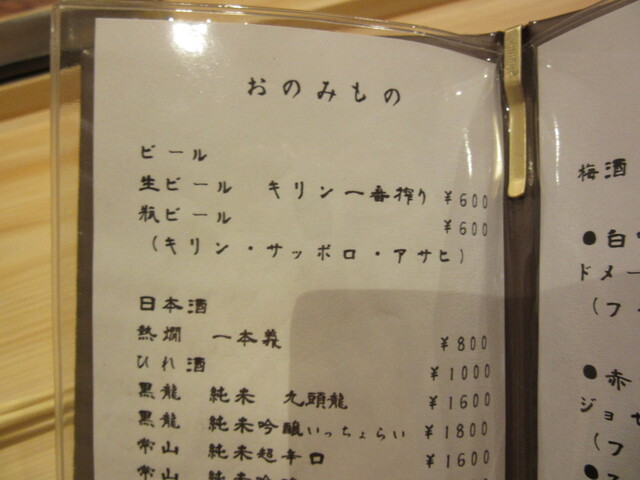 おのみもの
ビール
生ビール　キリン一番搾り ¥600
瓶ビール ¥600
（キリン・サッポロ・アサヒ）
日本酒
熱燗　一本義 ¥800
ひれ酒 ¥1000
黒龍　純米　九頭龍 ¥1600
黒龍　純米吟醸いっちょらい ¥1800
常山　純米超辛口 ¥1600
常山　純米吟醸
梅酒
●白
ドメー
（フ
●赤
ジョセ
（フ